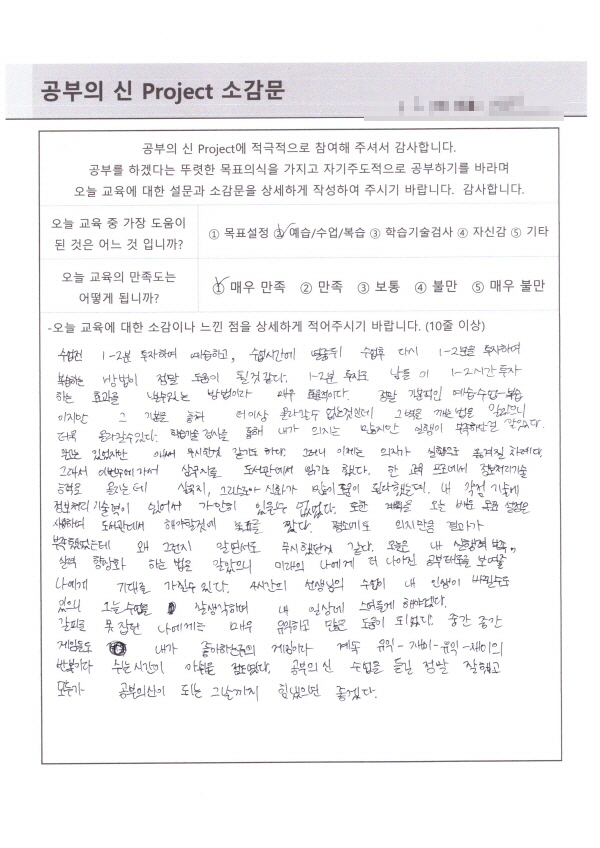 공부의 신 Project 소감문
공부의 신 Project에 적극적으로 참여해 주셔서 감사합니다.
공부를 하겠다는 뚜렷한 목표의식을 가지고 자기주도적으로 공부하기를 바라며
오늘 교육에 대한 설문과 소감문을 상세하게 작성하여 주시기 바랍니다. 감사합니다.
오늘 교육 중 가장 도움이
된 것은 어느 것 입니까?
① 목표설정 ② 예습/수업/복습 ③ 학습기술검사 ④ 자신감 ⑤ 기타
오늘 교육의 만족도는
어떻게 됩니까?
① 매우 만족 ② 만족 ③ 보통 ④ 불만 ⑤ 매우 불만
-오늘 교육에 대한 소감이나 느낀 점을 상세하게 적어주시기 바랍니다. (10줄 이상)
수업전 1-2분 투자하여 예습하고, 수업시간에 수업후 다시 1-2분을 투자하여
복습하는 방법이 정말 도움이 될것같다. 1-2분 투자로 남들 이 1-2시간 투자
하는 효과를 낼수있는 방법이라 매우 효율적이다. 정말 기본적인 예습-수업-복습
이지만 그 기본을 더이상 올라갈수 없는것인데 그 벽은 깨는 법을 알았으니
더욱 올라갈수있다. 학습기술 검사를 통해 내가 의지는 많지만 실행이 부족하단걸 알았다.
같기도 하다. 그러나 이제는 의지가 실행으로 옮겨질 차례다.
그래서 이번주에 가서 삼국지를 도서관에서 빌기로 했다. 한 정보처리기술
삼국지, 그리스로마 신화가 많이 도움이 된다했는데, 내 강점 기술에
정보처리 기술력이 있어서 가만히 있을수 없었다. 또한 계획을 오늘 배운
사용하여 도서관에서 해야할것에 목표를 짰다. 평소에도 의지만큼 결과가
부족했었는데 왜 그런지 알면서도 무시했던거 같다. 오늘은 내 실행력 부족,
실력 향상화 하는 법을 알았으니 미래의 나에게 더 나아진 공부태도를 보여줄
나에게 기대를 가질수 있다. 4시간의 선생님의 수업이 내 인생이 바뀔수도
있으니 오늘 수업을 잘생각하며 내 일상에 스며들게 해야겠다.
갈피를 못 잡던 나에게는 매우 유익하고 도움이 되었다. 중간 중간
게임들도 내가 좋아하는 게임이라 계속 유익-재미-유익-재미의
반복이다 쉬는시간이 아쉬울 정도였다. 공부의 신 수업을 듣길 정말 잘했고
모두가 공부의신이 되는 그날까지 힘냈으면 좋겠다.